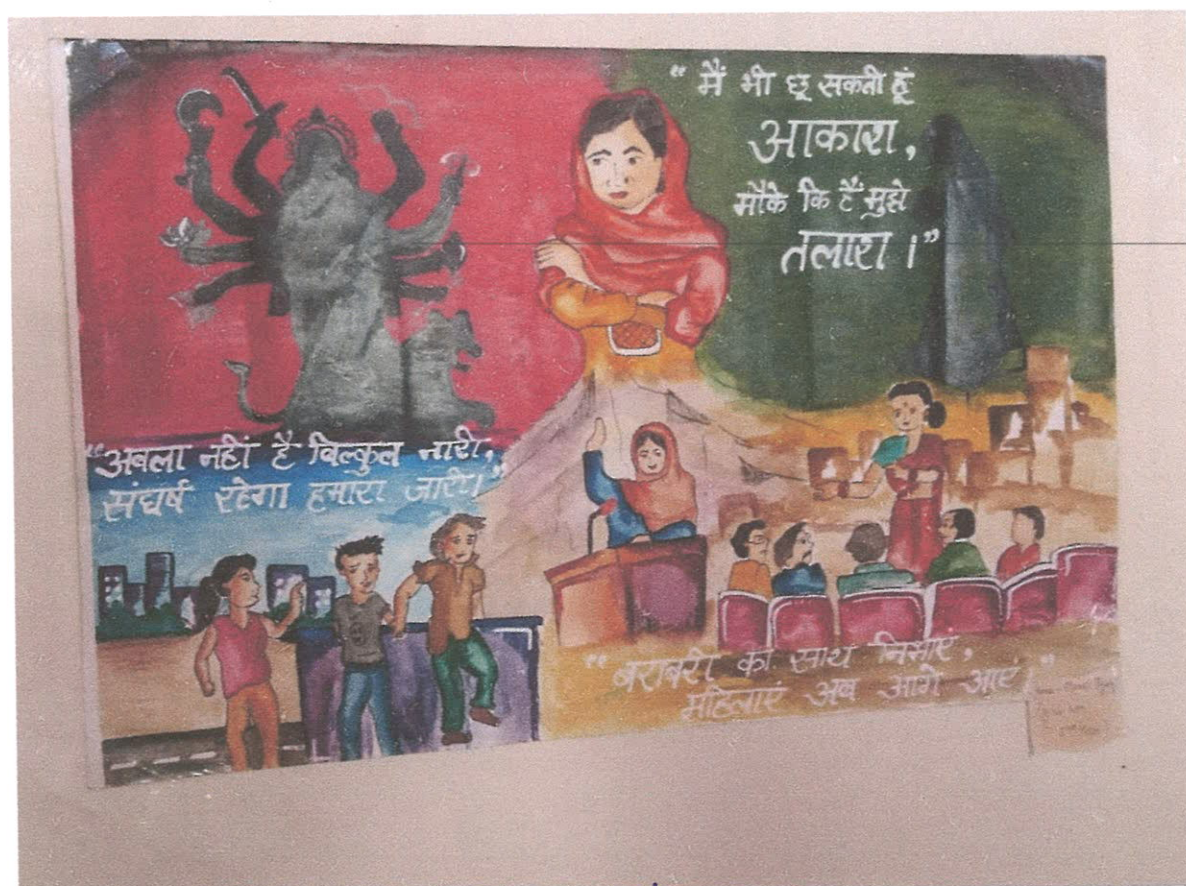 “ मैं भी छू सकती हूं
आकाश,
मौके कि है मुझे
तलाश।”
“अबला नहीं है बिल्कुल नारी,
संघर्ष रहेगा हमारा जारी।”
“ बराबरी का साथ निभाएं,
महिलाएं अब आगे आएं।”